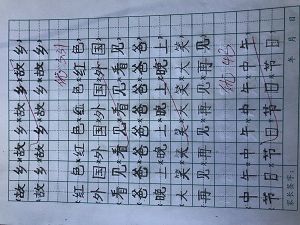 故乡故乡故乡故乡
故乡故乡故乡故乡
红色红色红色红色
外国外国外国外国
看见看见看见看见
爸爸爸爸爸爸爸爸
晚上晚上晚上晚上
大笑大笑大笑大笑
再见再见再见再见
中午中午中午中午
节日节日节日节日
家长签字: 年 月